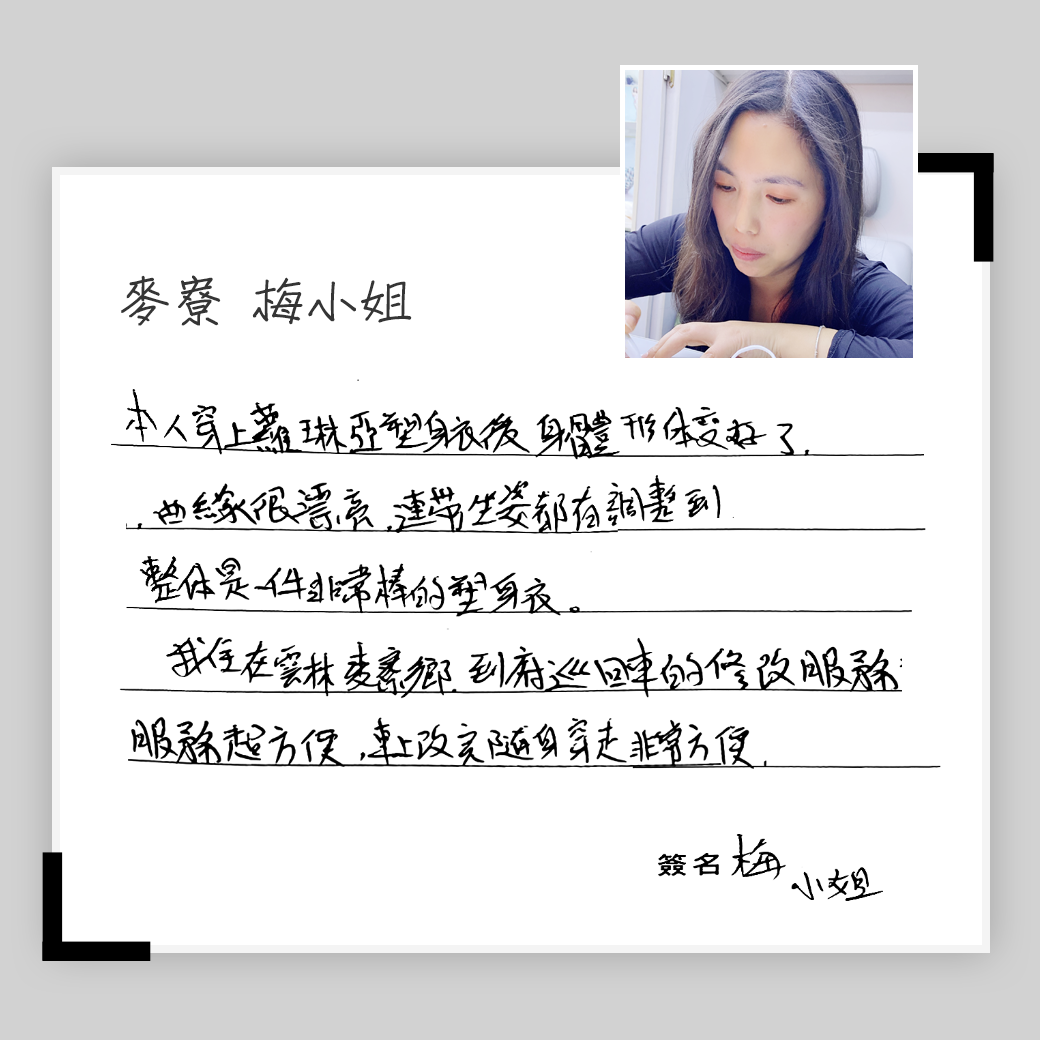 麥寮 梅小姐
本人穿上蘿琳亞塑身衣後身體形体變好了,
,曲線很漂亮,連帶坐姿都有調整到
整体是一件非常棒的塑身衣。
我住在雲林麥寮鄉,到府巡回車的修改服務
服務超方便,車上改完隨身穿走非常方便,
簽名 梅小姐